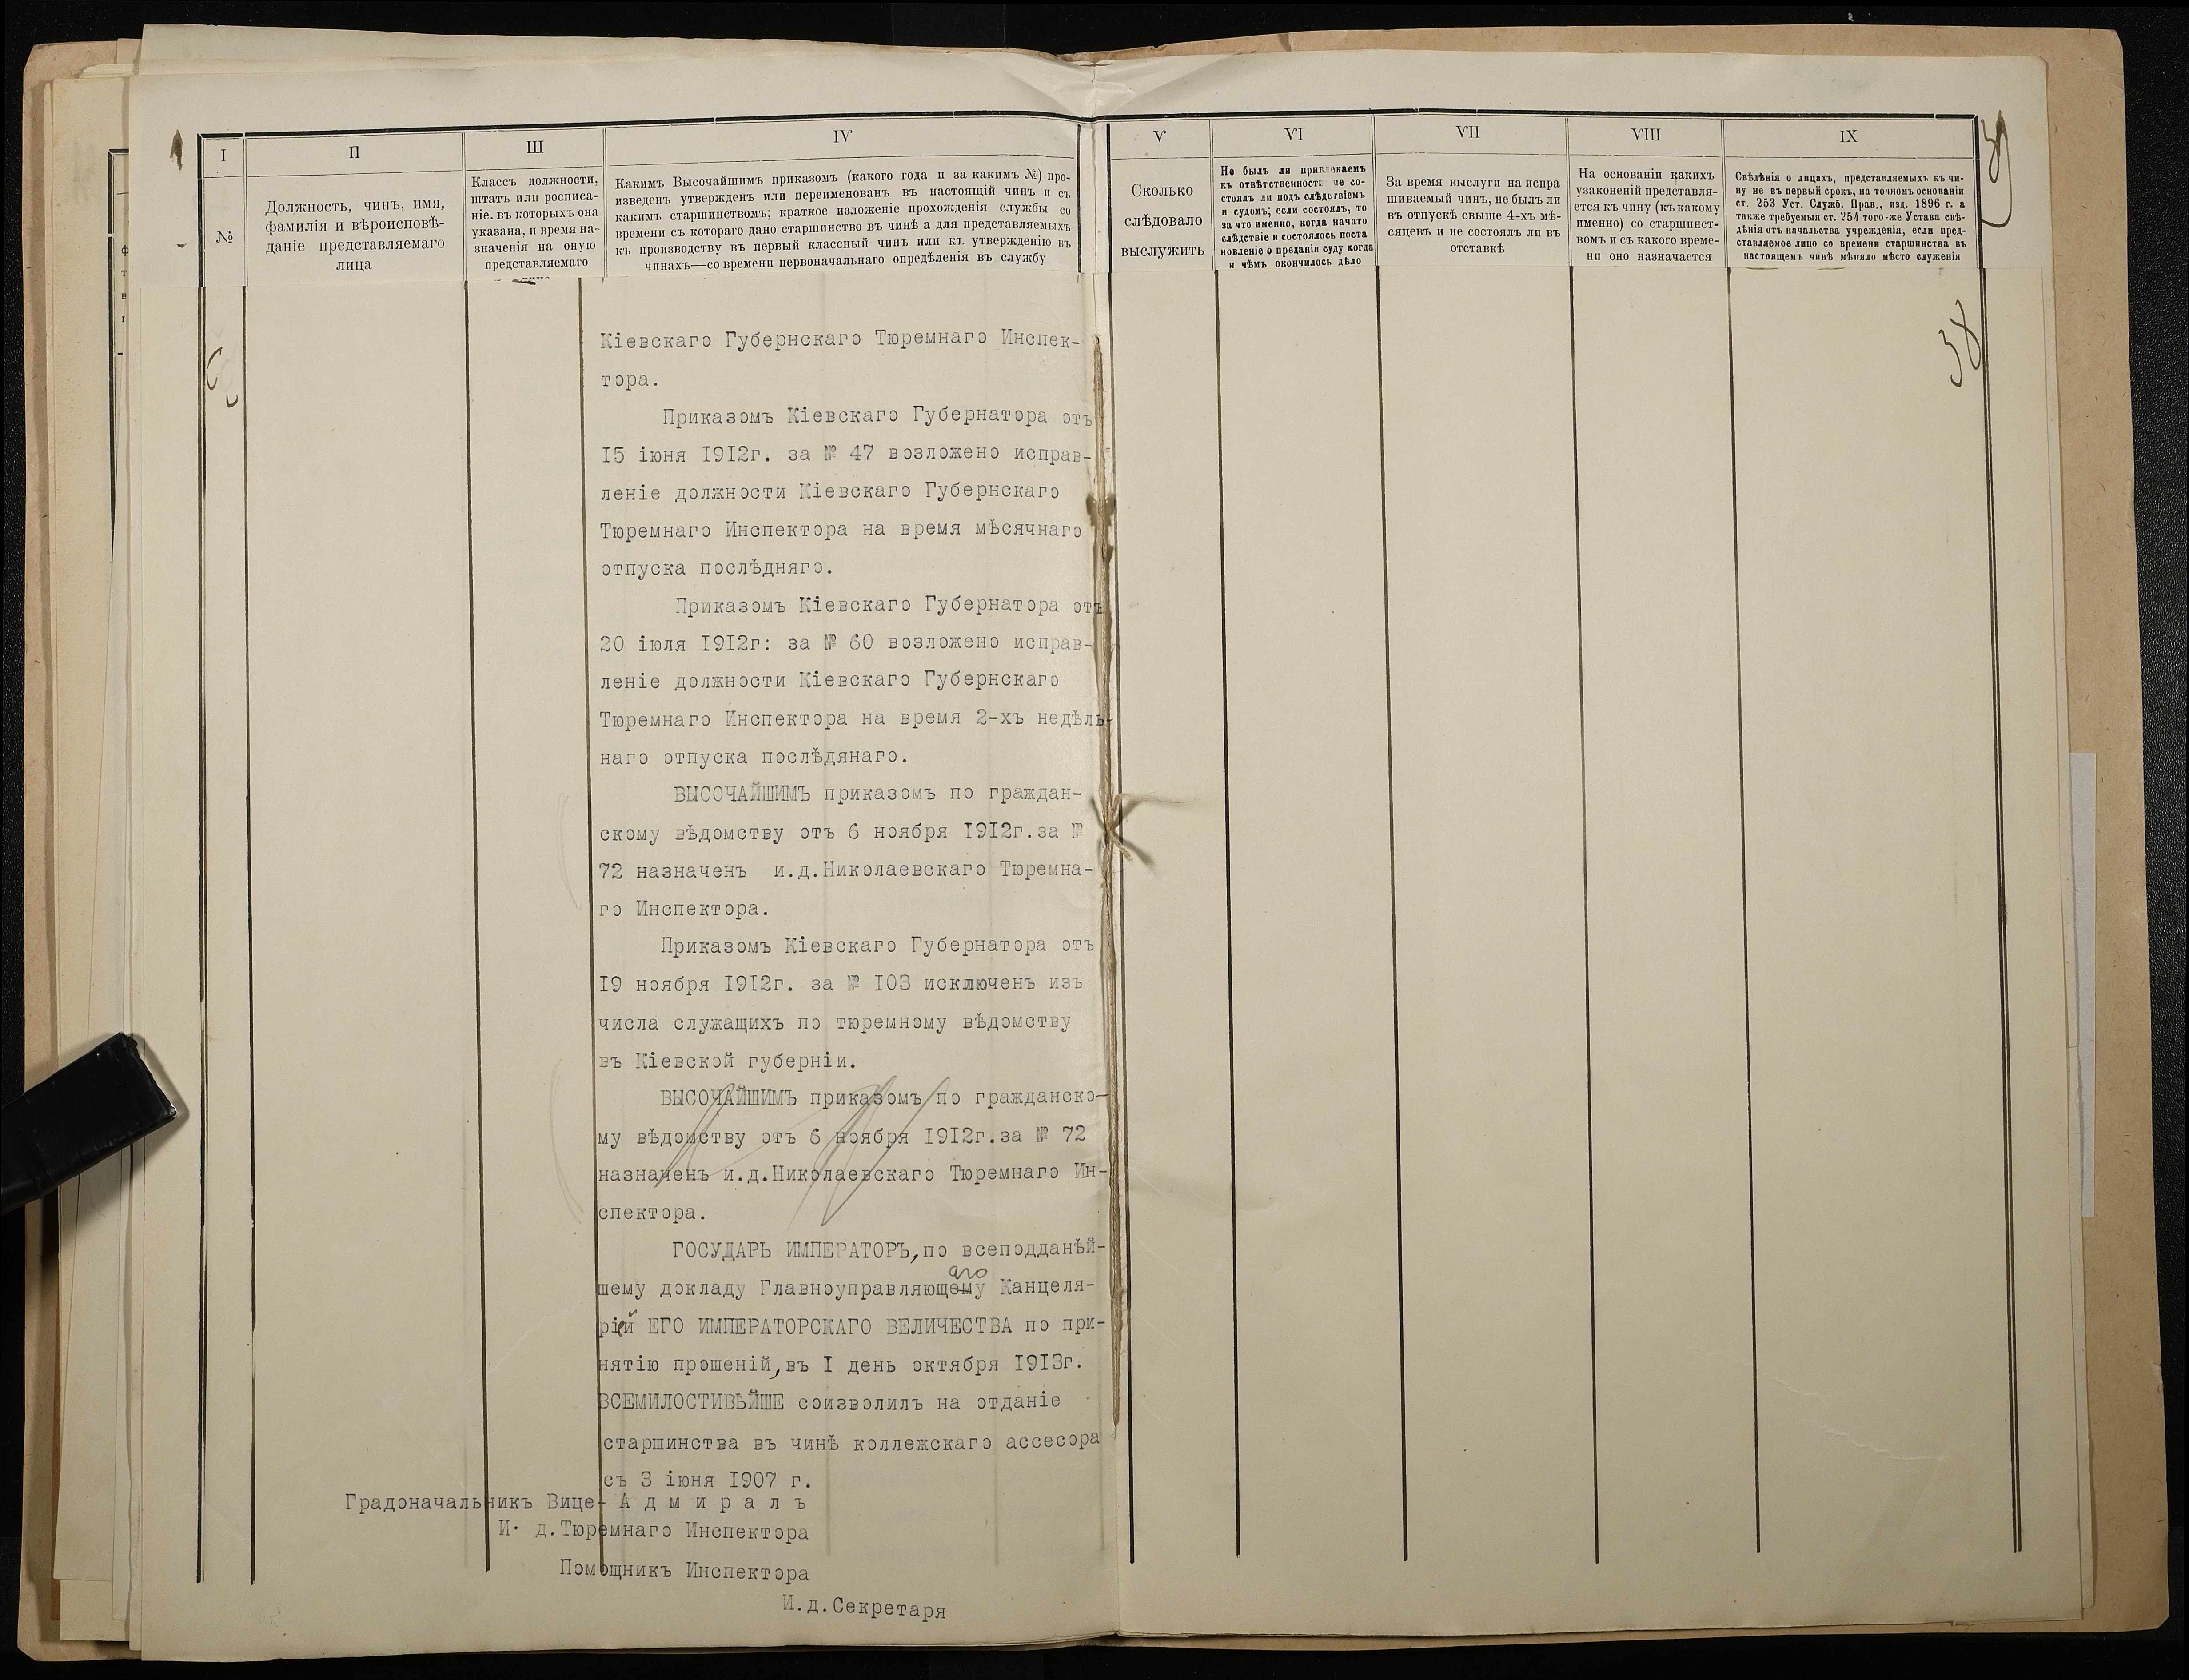 I
№
II
Должность, чинъ, имя,
фамилія и вѣроисповѣ-
даніе представляемаго
лица
III
Классъ должности,
штатъ или росписа-
ніе, въ которыхъ она
указана, и время на-
значенія на оную
представляемаго
IV
Какимъ Высочайшимъ приказомъ (какого года и за какимъ №) про-
изведенъ утвержденъ или переименованъ въ настоящій чинъ и съ
какимъ старшинствомъ; краткое изложеніе прохожденія службы со
времени съ котораго дано старшинство въ чинѣ а для представляемыхъ
къ производству въ первый классный чинъ или къ утвержденію въ
чинахъ—со времени первоначальнаго опредѣленія въ службу
V
Сколько
слѣдовало
выслужить
VI
Не былъ ли привлекаемъ
къ отвѣтственности не со-
стоялъ ли подъ слѣдствіемъ
и судомъ; если состоялъ, то
за что именно, когда начато
слѣдствіе и состоялось поста
новленіе о преданіи суду когда
и чѣмъ окончилось дѣло
VII
За время выслуги на испра
шиваемый чинъ, не былъ ли
въ отпускѣ свыше 4-хъ мѣ-
сяцевъ и не состоялъ ли въ
отставкѣ
VIII
На основаніи какихъ
узаконеній представля-
ется къ чину (къ какому
именно) со старшинст-
вомъ и съ какого време-
ни оно назначается
IX
Свѣдѣнія о лицахъ, представляемыхъ къ чи-
ну не въ первый срокъ, на точномъ основаніи
ст. 253 Уст. Служб. Прав., изд. 1896 г. а
также требуемыя ст. 254 того-же Устава свѣ-
дѣнія отъ начальства учрежденія, если пред-
ставляемое лицо со времени старшинства въ
настоящемъ чинѣ мѣняло мѣсто служенія
38
Кіевскаго Губернскаго Тюремнаго Инспек-
тора.
Приказомъ Кіевскаго Губернатора отъ
I5 іюня I9I2г. за № 47 возложено исправ-
леніе должности Кіевскаго Губернскаго
Тюремнаго Инспектора на время мѣсячнаго
отпуска послѣдняго.
Приказомъ Кіевскаго Губернатора отъ
20 іюля I9I2г: за № 60 возложено исправ-
леніе должности Кіевскаго Губернскаго
Тюремнаго Инспектора на время 2-хъ недѣль-
наго отпуска послѣдянаго.
ВЫСОЧАЙШИМЪ приказомъ по граждан-
скому вѣдомству отъ 6 ноября I9I2г.за №
72 назначенъ и.д.Николаевскаго Тюремна-
го Инспектора.
Приказомъ Кіевскаго Губернатора отъ
I9 ноября I9I2г. за № I03 исключенъ изъ
числа служащихъ по тюремному вѣдомству
въ Кіевской губерніи.
ВЫСОЧАЙШИМЪ приказомъ по гражданско-
му вѣдомству отъ 6 ноября I9I2г.за № 72
назначенъ и.д.Николаевскаго Тюремнаго Ин-
спектора.
ГОСУДАРЬ ИМПЕРАТОРЪ,по всеподданѣй-
аго
шему докладу Главноуправляющему Канцеля-
рій ЕГО ИМПЕРАТОРСКАГО ВЕЛИЧЕСТВА по при-
нятію прошеній,въ I день октября I9I3г.
ВСЕМИЛОСТИВѢЙШЕ соизволилъ на отданіе
старшинства въ чинѣ коллежскаго ассесора
съ 3 іюня I907 г.
Градоначальникъ Вице- А д м и р а л ъ
И· д.Тюремнаго Инспектора
Помощникъ Инспектора
И.д.Секретаря